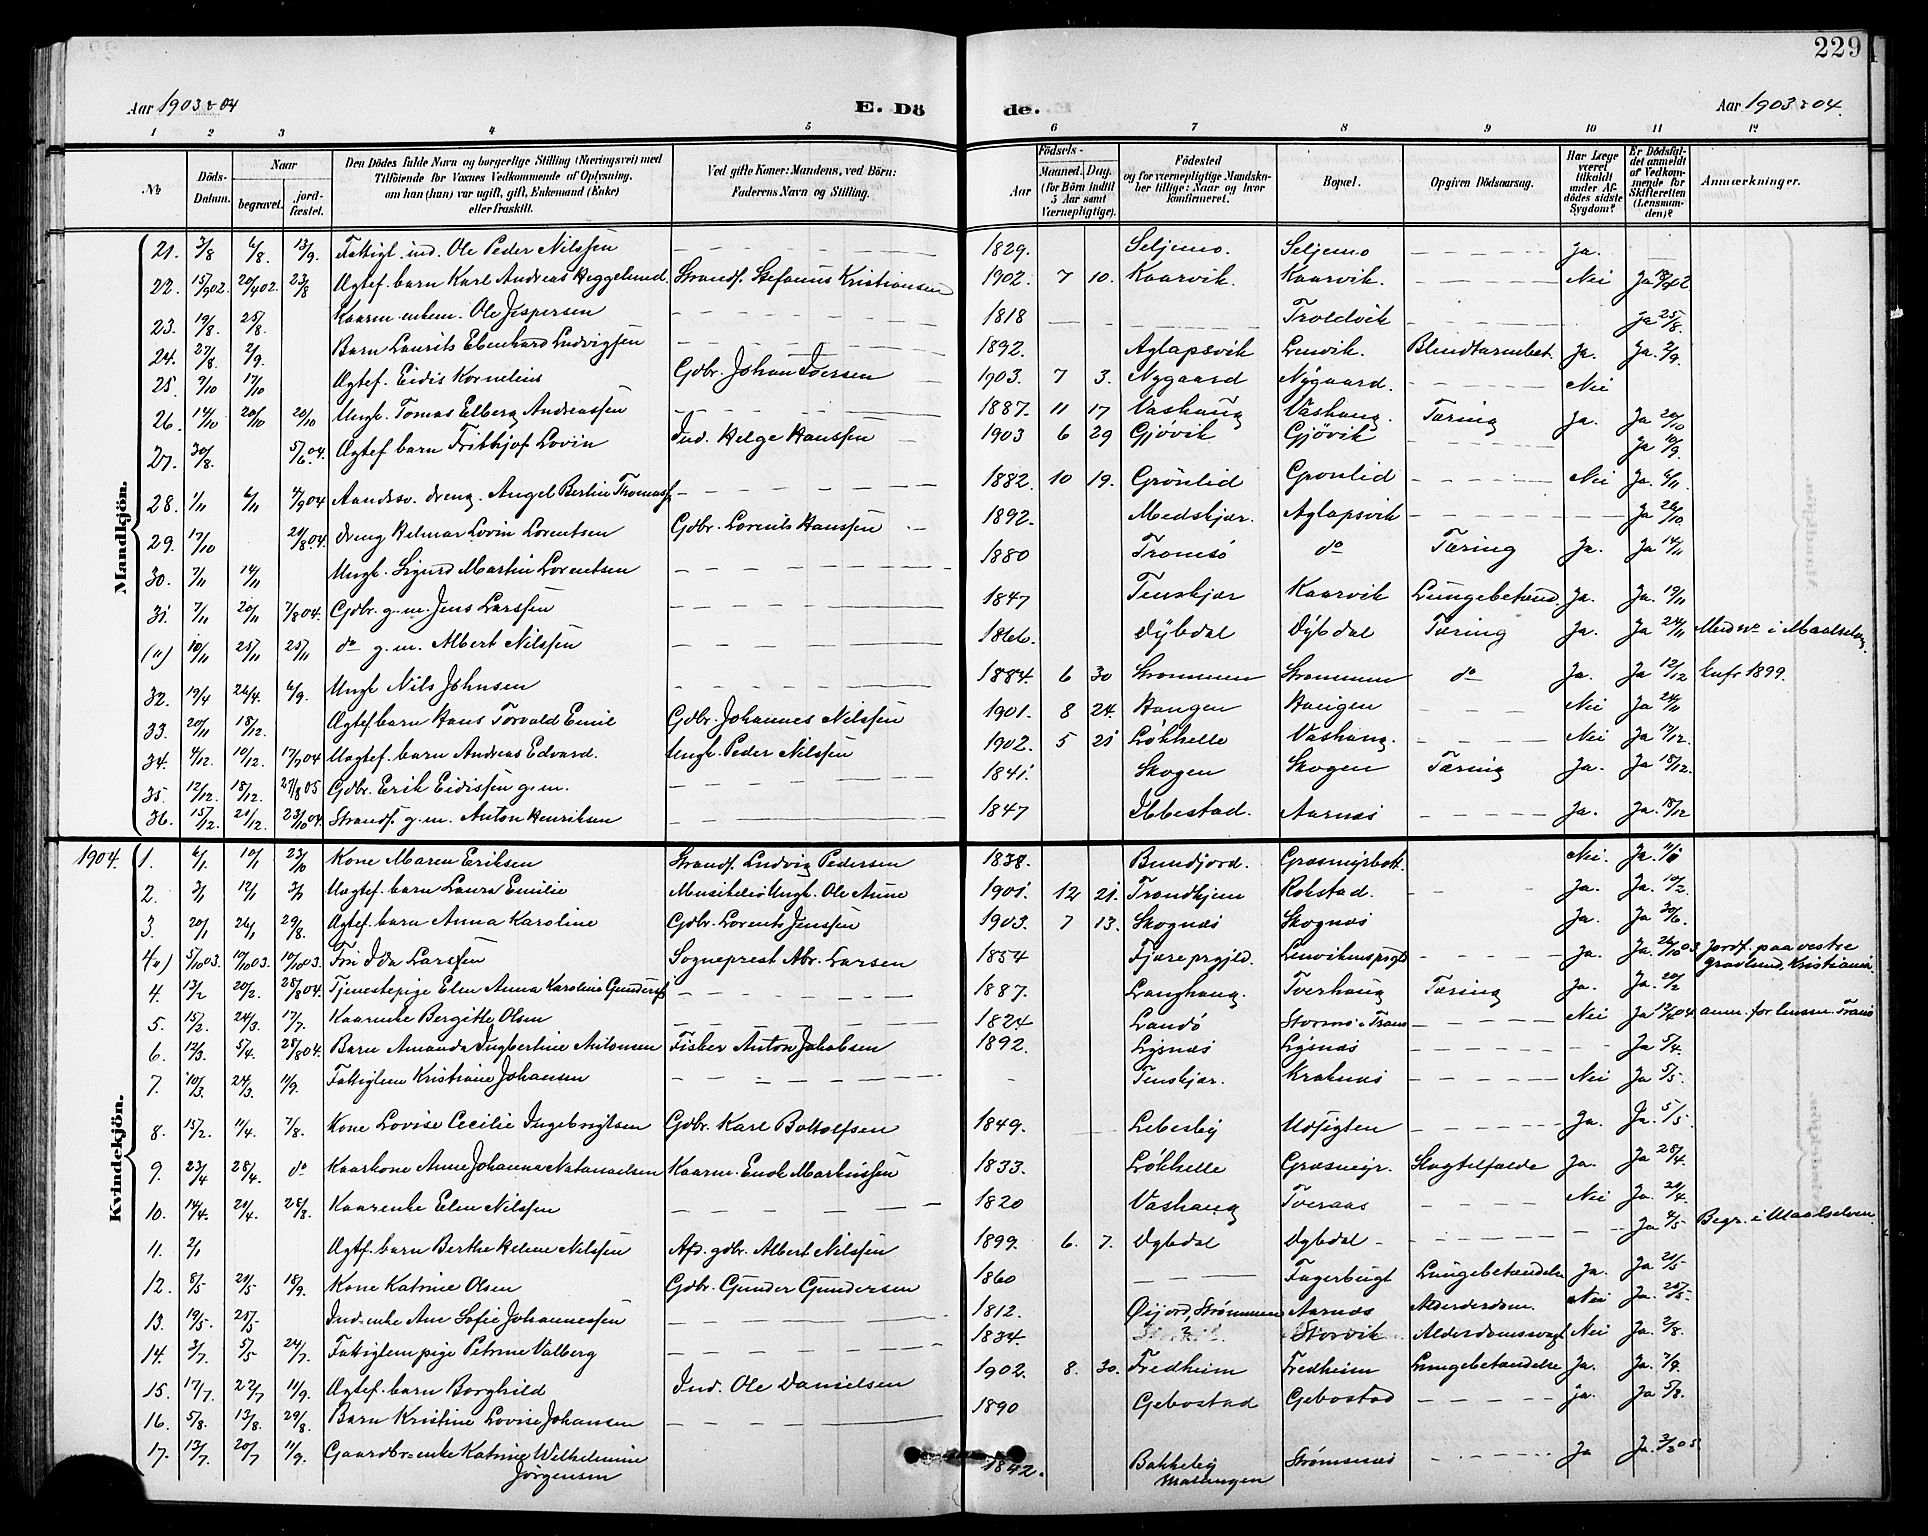 229
Aar 1903 & 04
E. Dö
de.
Aar 1903 & 04.
1 2 3 4 5 6 7 8 9 10 11 12
No
Döds-Datum.
Naar
begravet.
jord-fæstet.
Den Dödes fulde Navn og borgerlige Stilling (Næringsvei) med
Tilföiende for Voxnes Vedkommende af Oplysning,
om han (hun) var ugift, gift, Enkemand (Enke)
eller fraskilt.
Ved gifte Koner: Mandens, ved Börn:
Faderens Navn og Stilling.
Födsels-
Aar
Maaned. Dag.
(for Börn indtil
5 Aar samt
Værnepligtige).
Födested
og for værnepligtige Mandskaber tillige: Naar og hvor
konfirmeret.
Bopæl.
Opgiven Dödsaarsag.
Har Læge været tilkaldt under Afdödes sidste Sygdom?
Er Dödsfaldet anmeldt af Vedkommende for Skifteretten (Lensmanden)?
Anmærkninger.
Mandkjön.
21. 3/8 6/8. 13/9. Fattigl. ind. Ole Peder Nilssen 1829. Seljemo. Seljemo Ja.
22. 15/902. 20/402. 23/8 Ægtef. barn Karl Andreas Heggelund Strands. Stefanus Kristiansen 1902. 7 10. Kaarvik. Kaarvik. Nei Ja
23. 19/8. 25/8. Kaarm. enkem. Ole Jespersen 1818 Troldvik Ja 25/8.
24. 27/8 2/9. Barn Laurits Ebenhard Ludvigsen 1892. Aglapsvik Lenvik. Blindtarmbet. Ja. Ja. 2/9.
25 9/10 17/10 Ægtef. Eidis Kornelius Gdbr. Johan Iversen 1903. 7 3. Nygaard Nygaard. Nei
26. 14/10 20/10 20/10 Ungk. Tomas Elberg Andreassen 1887. 11 17 Vashaug Vashaug. Tæring Ja. Ja 20/10
27. 30/8. 5/6.04. Ægtef barn Frithjof Lovin Ind. Helge Hanssen 1903 6 29 Gjövik Gjövik Ja 10/9.
28. 1/11 6/11 4/904 Aandssv. dreng. Angel Bertin Thomass. 1882. 10 19. Grönlid Grönlid Nei Ja. 6/11.
29. 17/10 24/804. dreng Helmar Lovin Lorentsen Gdbr. Lorents Hanssen 1892. Medskjær. Aglapsvik Ja 26/10
30. 7/11 14/11 Ungk. Sigurd Martin Lorentsen 1880 Tromsö do Tæring Ja. Ja 14/11
31. 7/11 20/11 7/804. Gdbr. g.m. Jens Larssen 1847 Tenskjær Kaarvik Lungebetænd. Ja. Ja. 19/11
(a) 10/11 25/11 25/11 do g.m. Albert Nilssen 1866. Dybdal Dybdal Tæring Ja. Ja 24/11 i Maalselv.
32. 19/4 26/4. 6/9. Ungk Nils Johnsen 1884. 6 30 Strömmen Strömmen do Ja. Ja 12/12 1899.
33. 20/11 18/12. Ægtef barn Hans Torvald Emil Gdbr. Johannes Nilssen 1901. 8 24. Haugen Haugen Nei Ja 24/11
34. 4/12. 10/12. 17/704 Uægtef. barn Andreas Edvard. Ungk. Peder Nilssen 1902. 5 21 Lökhelle Vashaug. Nei Ja 17/12.
35. 12/12. 18/12. 27/805 Gdbr. Erik Eidissen g.m. 1841. Skogen Skogen Tæring Ja. Ja 18/12.
36. 15/12. 21/12. 23/1004. Strands. g.m. Anton Henriksen 1847 Ibbestad. Aarnæs Ja. Ja. 18/12
Kvindekjön.
1904. 1. 6/1 10/1 23/10 Kone Maren Eriksen Strands. Ludvig Pedersen 1838. Bundjord. Græsmyrbot. Nei. Ja.
2. 3/1 12/1 3/2 Uægtef. barn Laura Emilie Ungk. Ole Aune 1901. 12 21. Trondhjem Rokstad. Ja. Ja. 10/2.
3. 20/1 26/1 29/8. Ægtef. barn Anna Karoline Gdbr. Lorents Jenssen 1903. 7 13. Skognæs Skognæs Ja. Ja 30/6.
4a) 5/1003. 10/1003. 10/1003. Fru Ida Larssen Sogneprest Abr. Larsen 1854 Fjære prgjld. Lenvikens prgd Ja. Ja. 26/1003 jordf. paa vestre
gravlund, Kristiania.
4. 13/2 20/2. 28/804. Tjenestepige Elen Anna Karoline Gunders. 1887. Langhaug. Tverhaug Tæring Ja. Ja. 20/2
5. 15/2. 24/3. 17/7. Kaarenke Bergitte Olsen 1824 Landö Stormo i Tranö Nei Ja anm. for lensm. Tranö
6. 12/3. 5/4. 28/804. Barn Amanda Ingbertine Antonsen Fisker Anton Jakobsen 1892. Lysnæs Lysnæs Ja 5/4.
7. 10/3. 24/3. 11/9. Fattiglem Kristiane Johansen Tenskjær. Kraknæs Nei Ja 5/5.
8. 15/2. 11/4. 7/8. Kone Lovise Cecilie Ingebrigtsen Gdbr. Karl Boltolfsen 1849. Lebesby Udsigten Ja. Ja. 5/5.
9. 23/4 28/4. do Kaarkone Anne Johanna Natanaelsen Kaarm. Enok Markussen 1833. Lökhelle Græsmyr. Slagtilfælde Ja. Ja 28/4.
10. 14/4. 21/4. 28/8. Kaarenke Elen Nilssen 1820 Vashaug Tveraas Nei Ja. 21/4.
11. 2/1 Ægtf. barn Berthe Helene Nilssen Afd. gdbr. Albert Nilssen 1899. 6. 7. Dybdal Dybdal Ja 4/5 Begr. i Maalselven.
12. 8/5 21/5 18/9. Kone Katrine Olsen Gdbr. Gunder Gundersen 1860 Fagerbugt Lungebetændelse Ja. Ja 21/5
13. 19/5. 25/5. Ind.-enke Ane Sofie Johannessen 1812. Öijord, Strömmen Aarnæs Alderdom. Nei Ja. 25/5.
14. 3/7. 5/5 24/7. Fattiglem pige Petrine Valberg 1834. ? Storvik Alderdomssvagh. Nei Ja. 2/8.
15. 17/7. 27/7 11/9. Ægtef. barn Borghild Ind. Ole Danielsen 1902. 8. 30. Fredheim Fredheim Lungebetændelse Ja. Ja. 7/9.
16. 5/8. 13/8. 29/8. Barn Kristine Lovise Johansen 1890 Gebostad Gebostad Ja. Ja 5/8.
17. 13/7. 20/7 11/9. Gaardbr.=enke Katrine Wilhelmine
Jörgensen 1842. Bakkeby
Malangen Strömsnæs Ja Ja. 3/205.